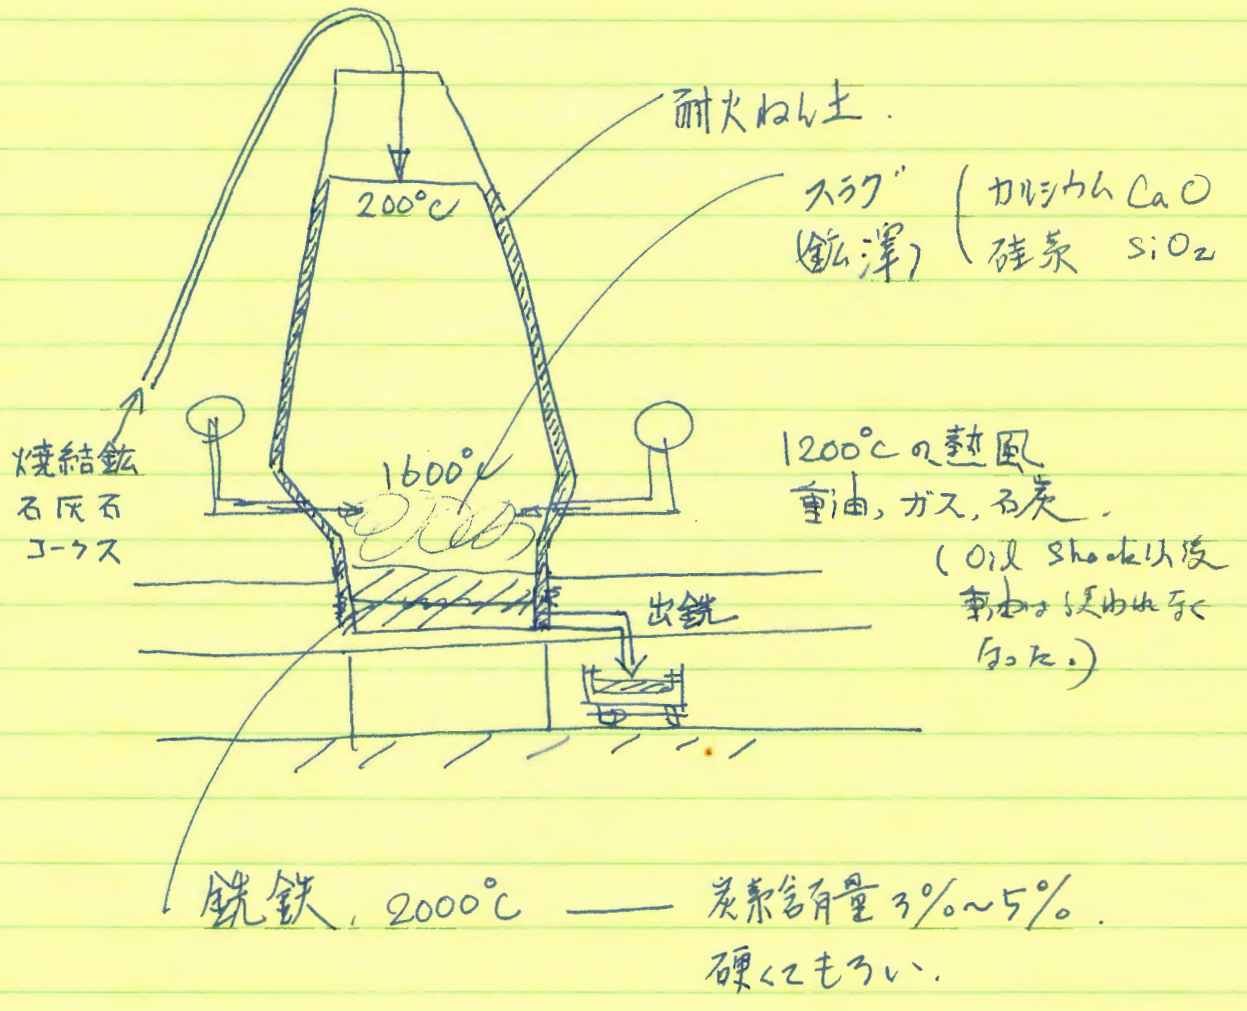 耐火ねん土.
200℃
スラグ
(鉱滓)
カルシウム CaO
硅素 SiO2
焼結鉱
石灰石
コークス
1600℃
1200℃の熱風
重油、ガス、石炭.
(Oil Shock以後
重油は使われなく
なった。)
出銑
銑鉄, 2000℃ — 炭素含有量3%~5%.
硬くてもろい.